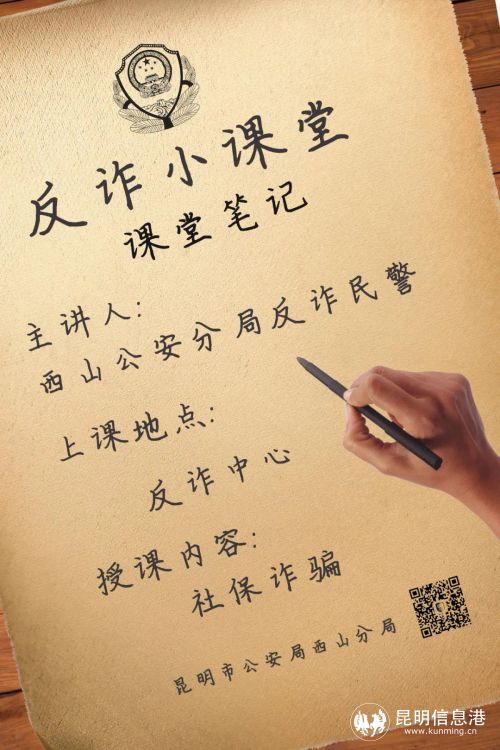 反诈小课堂
课堂笔记
主讲人:
西山公安分局反诈民警
上课地点:
反诈中心
授课内容:
社保诈骗
昆明市公安局西山分局
昆明信息港
www.kunming.cn